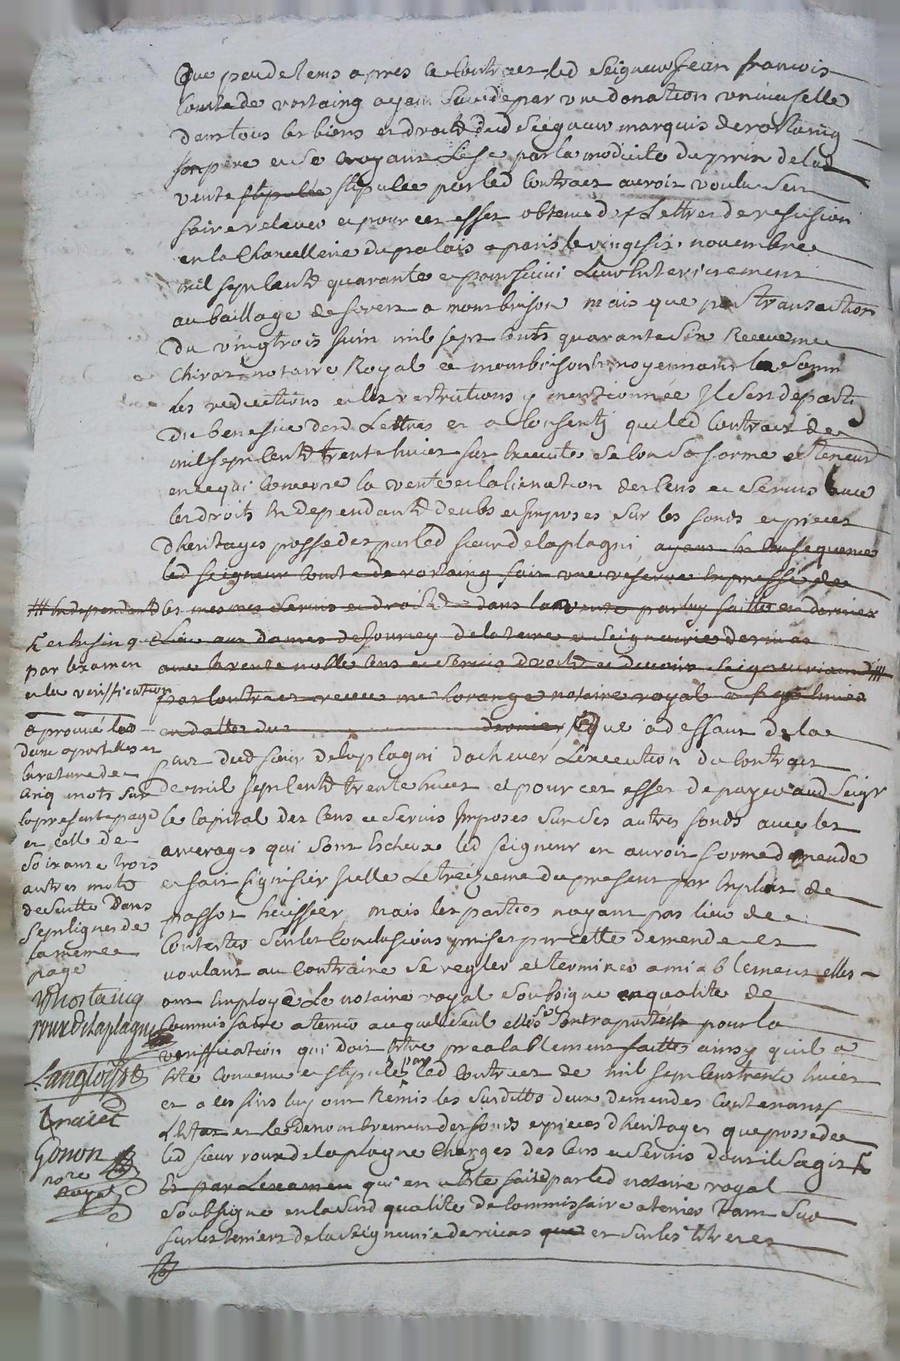 Que peu de tems apres ce Contract led seigneur Jean francois
Comte de rostaing ayant succede par une donation universelle
dans tous les biens et droitd dud seigneur marquis de rostaing
son pere et se croyant Lese par la modicite du prix de lad
vente stipulée stipulée par led Contract auroit voulu sen
faire relever et pour cet effet obtenu des Lettres de rescision
en la Chancellerie du palais a paris le vingt six novembre
mil sept centd quarante et poursuivi Leur Enterinement
au baillage de forest a montbrison mais que par transaction
du vingt trois juin mil sept cents quarante six Receue me
Chirat notaire Royal a montbrison moyennant la somme
les reductions et les restrictions y mentionnée Il sest departi
du benefice desd Lettres et a Consenti que led Contract de
mil sept centd trente huict fut Execute selon sa forme et teneur
en ce qui Concerne la vente et lalienation des Cens et servis avec
les droits En dependantd deubs et Imposes sur les fonds et pieces
dheritages possedes par led sieur delaplagni ayant En Consequence
led seigneur Comte de rostaing fait une reserve Expresse de
/// Independantd les mesmes servis et droitd dans la vente par luy faitte en dernier
Lieu aux dames de Jourcey de la terre et seigneurie de rivas
avec la rente noble Cens et servis droitd et devoirs seigneuriaux ///
par Contract receu me Lorange notaire royal a
en datte du dernier que a deffaut de la
par dud sieur delaplagni dachever Lexecution du Contract
de mil sept centd trente huict et pour cet effet de payer aud Seigr
le Capital des Cens et servis Imposes sur ses autres fonds avec les
arrerages qui sont Echeus led seigneur en auroit forme demende
et fait signifier Icelle Le treizieme du present par Exploit de
passot huissier, mais les parties nayant pas lieu de
Contester sur les Conclusions prises par cette demende et
voulant au Contraire se regler et terminer amiablement elles
ont Employé Le notaire royal soubsigne en qualite de
Commissaire a terrier auquel seul elles sen sont rapportees pour la
verification qui doit Estre prealablement faitte ainsy quil a
ete Convenu et stipule par led Contract de mil sept cent trente huict
et a ces fins luy ont Remis les susdittes deux demendes Contenant
Lhetat et le denombrement des fonds et pieces dheritages que possede
led sieur roux delaplagne Charges des Cens et servis dont il sagit
Et par Lexamen qui en a été fait par led notaire royal
soubsigne en lasusd qualite de Commissaire a terrier tant sur
sur les terriers de la seigneurie de rivas que et sur les titres et
par lexamen
et la verification
aprouvé les
deux apostilles et
la rature de
cinq mots sur
la presente page
et celle de
soixante trois
autres mots
de suitte dans
sept lignes de
la mesme
page
Rostaing
rouxdelaplagne
Langlois
Gonon
nore
royal